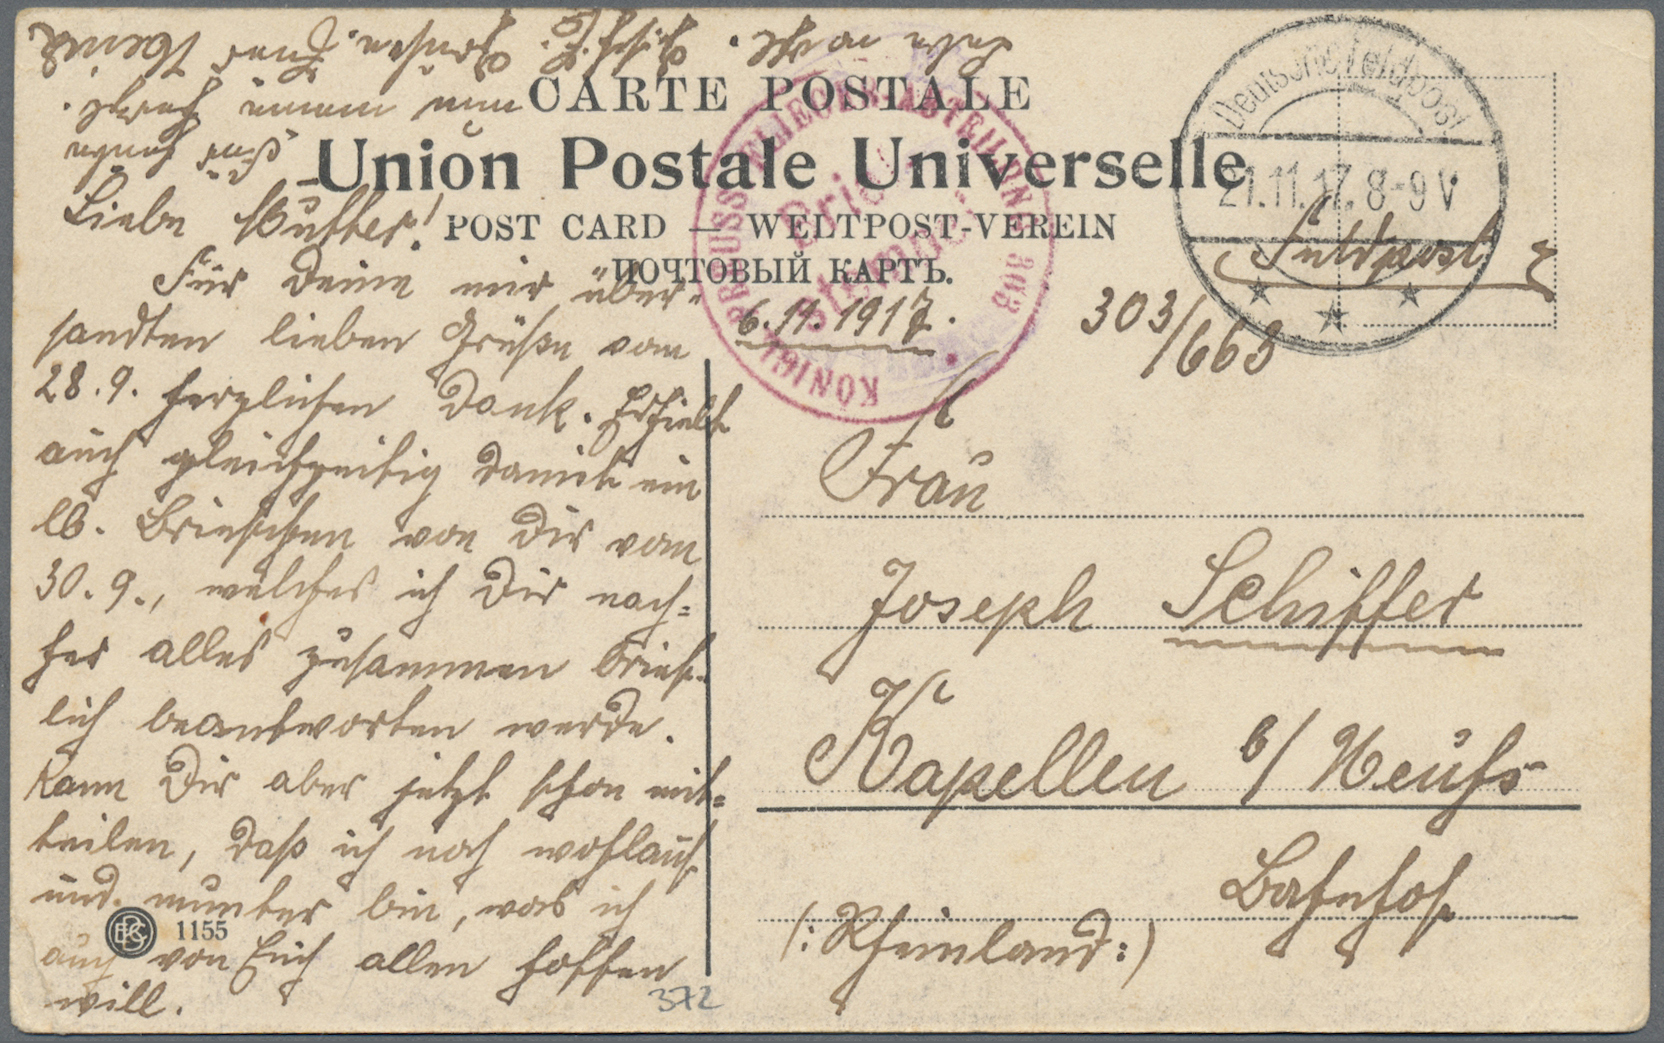 CARTE POSTALE
Union Postale Universelle
POST CARD — WELTPOST-VEREIN
ПОЧТОВЫЙ КАРТЪ.
Deutsche Feldpost
21.11.17. 8-9 V
KÖNIGL. PREUSS. FLIEGER-ABTEILUNG 303
Brief
Stempel
Feldpost
303/663
6.11.1917.
Liebe Mutter!
Für Deine mir über-
sandten lieben Grüße vom
28.9. herzlichen Dank. Erhielt
auch gleichzeitig damit ein
lb. Briefchen von Dir vom
30.9., welches ich Dir nach=
her alles zusammen brief-
lich beantworten werde.
Kann Dir aber jetzt schon mit=
teilen, daß ich noch wohlauf
und munter bin, was ich
auch von Euch allen hoffen
will.
nun immer
Frau
Joseph Schiffer
Kapellen b/ Neuss
Bahnhof
(: Rheinland :)
1155
372